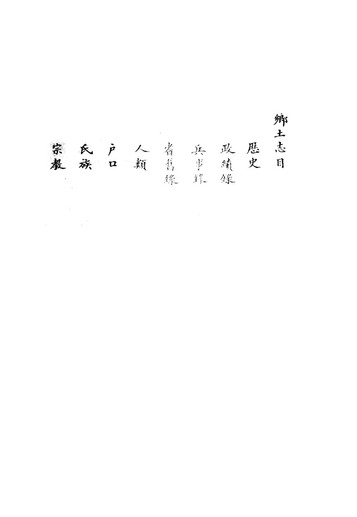 鄉土志目
歷史
政績錄
兵事錄
耆舊錄
人類
戶口
氏族
宗教